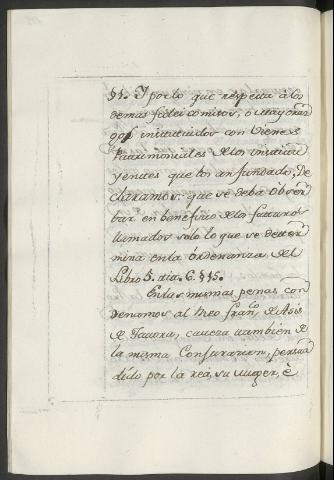 §1. I por lo que respeita á los
demas fidei comisos, ó mayoraz
gos instituidos con vienes
Patrimoniales de los institu
yentes que los an fundado: De
claramos, que se deba obser
bar en beneficio de los futuros
llamados solo lo que se deter
mina en la ordenanza del
Libro 5. tit. 6. §15.
En las mismas penas con
denamos al Reo Fran.co de Asis
de Tavora, caveza tambien de
la misma Conjuracion, persua
dido por la rea, su muger, è